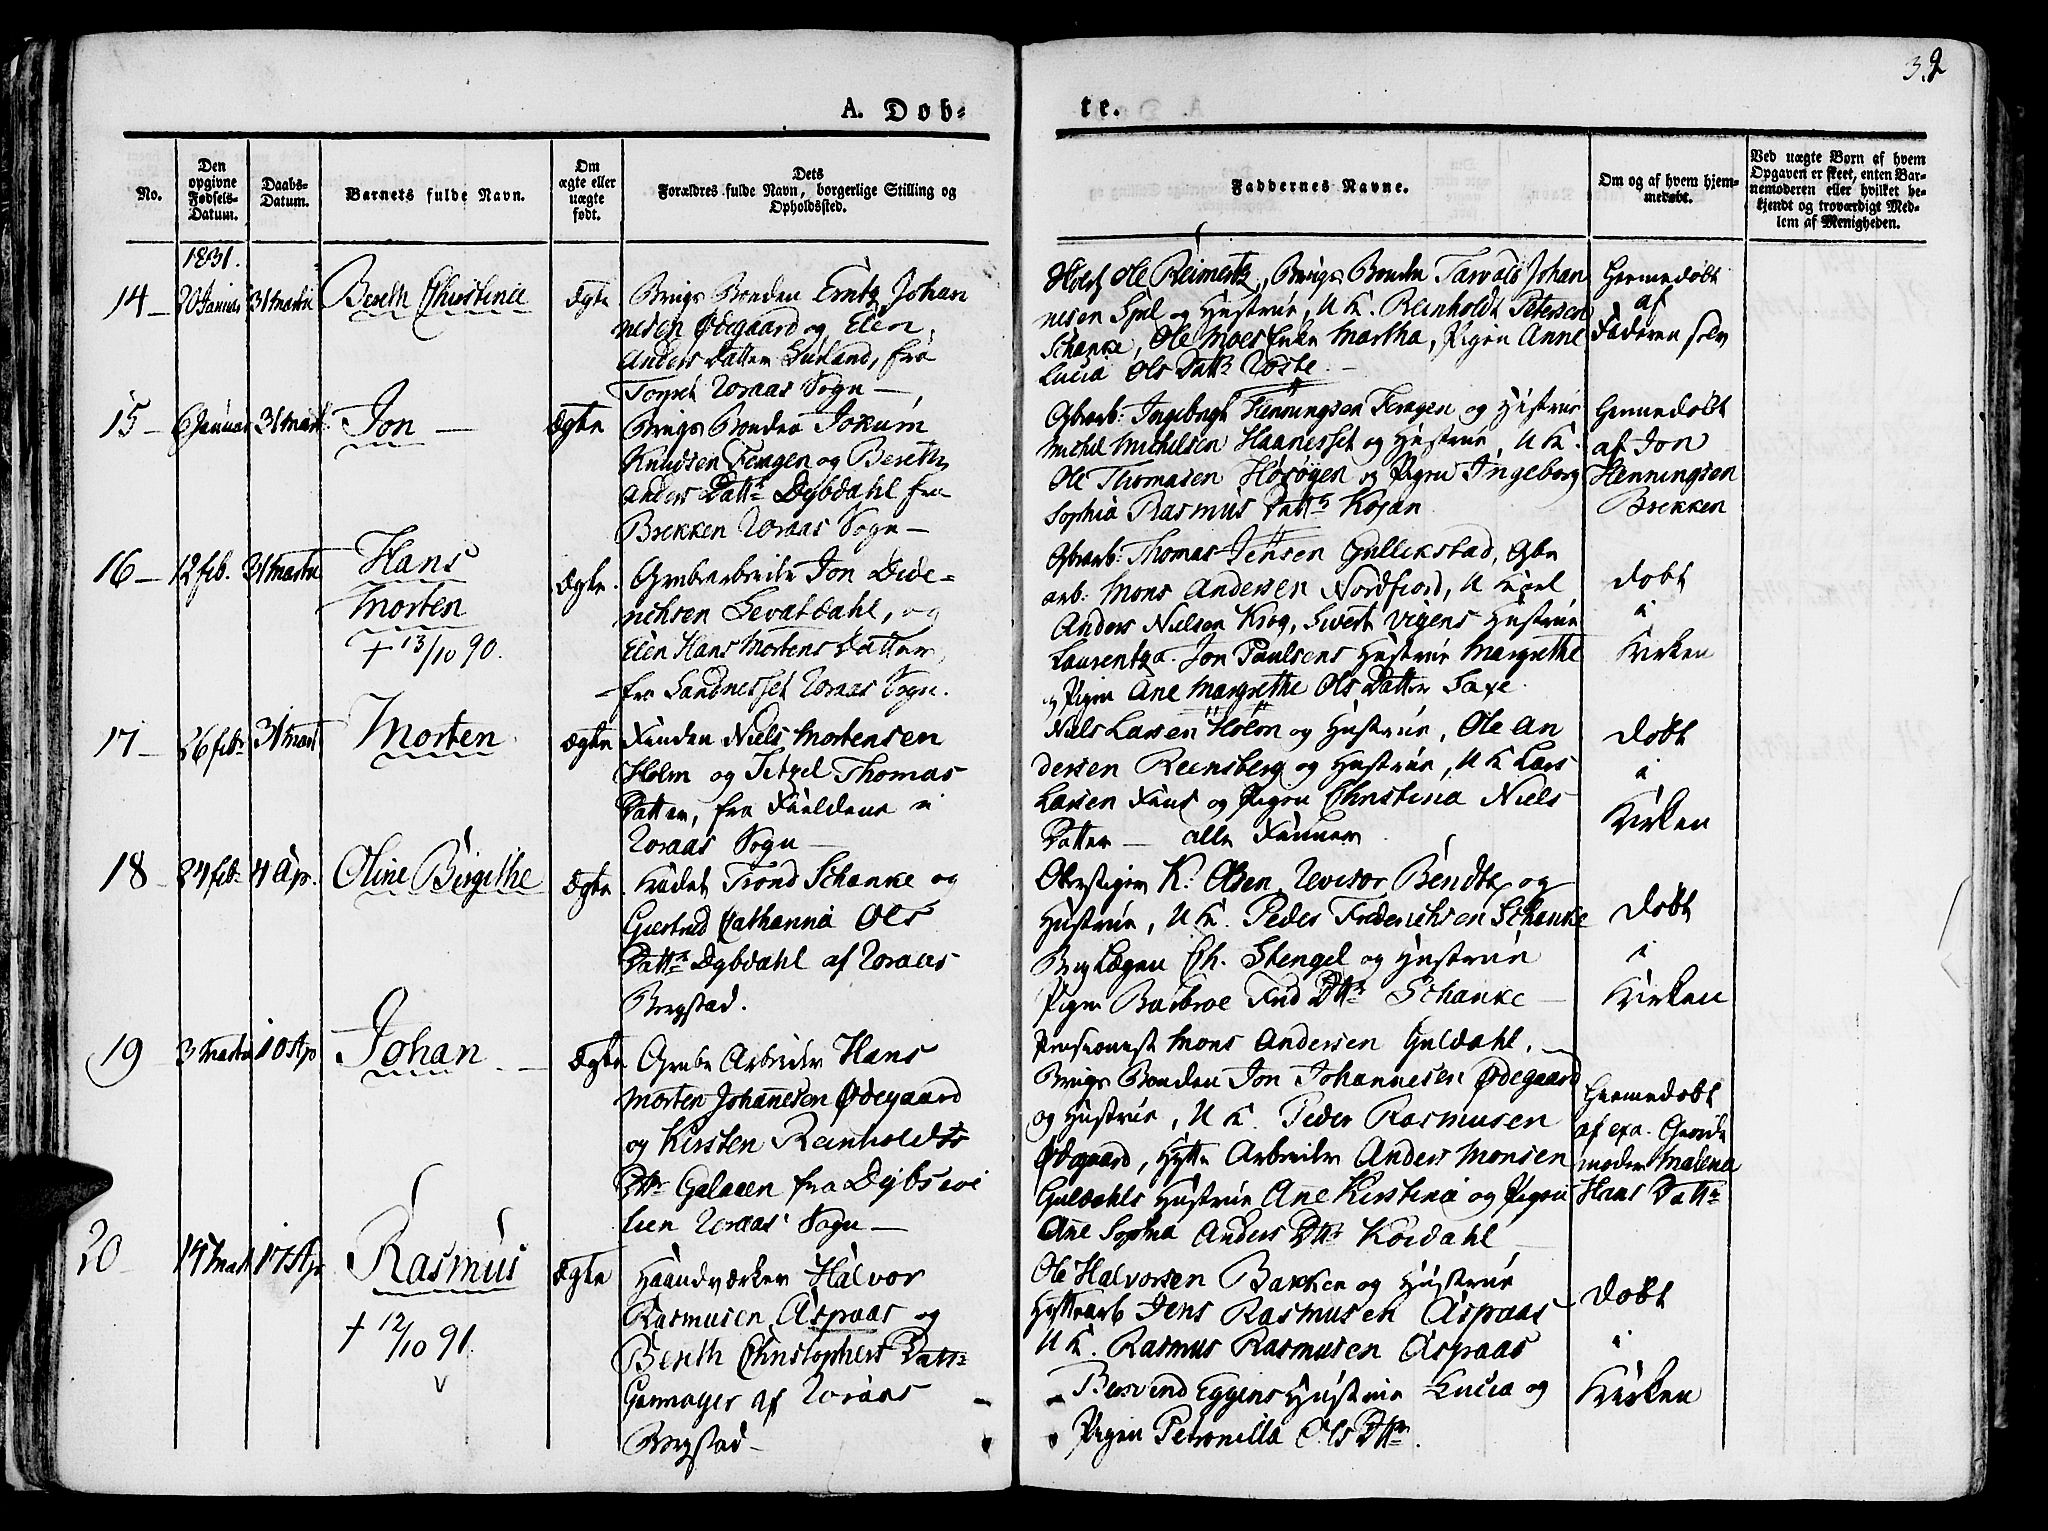 32
A. Døb-
te.
No.
Den opgivne Fødsels-Datum.
Daabs-Datum.
Barnets fulde Navn.
Om ægte eller uægte født.
Dets
Forældres fulde Navn, borgerlige Stilling og
Opholdssted.
Faddernes Navne.
Om og af hvem hjem-
medøbt.
Ved uægte Børn af hvem
Opgaven er skeet, enten Bar-
nemoderen eller hvilket be-
kjendt og troværdigt Med-
lem af Menigheden.
1831.
14 20 Januar 31 Martii Bereth Christina ægte
Brugs Bonden Erntz Johan
nesen Ødegaard og Elen
Anders Datter Guland, fra
Tomset Röraas Sogn
Ole Reimertz, Brugs Bonden Tarvald Johan
nesen Spel og Hustrue, U K. Reinholdt Petersen
Schanke, Ole Moes Enke Martha, Pigen Anne
Lucia Ols Dattr Röste.
Hiemmedøbt
af
Faderen selv
15 6 Januar 31 Mart Jon ægte
Brugs Bonden Jokum
Knudsen Feragen og Bereth
Anders Dattr Dybdahl fra
Brekken Röraas Sogn
Gbrarb: Ingebrigt Henningsen Feragen og Hustrue
Michel Michelsen Haanesset og Hustrue, U K.
Ole Thomasen Hösøgen og Pigen Ingeborg
Sophia Rasmus Dattr Kojan
Hiemmedøbt
af Jon
Henningsen
Brekken
16 12 feb. 31 Martii Hans
Morten
+ 13/10 90.
ægte.
Grubearbeider Jon Dide-
richsen Sevatdahl, og
Elen Hans Mortens Datter
fra Sandnesset Röraas Sogn.
Gbrarb: Thomas Jensen Gullikstad, Gbr
arb: Mons Andersen Nordfiord, U Karl
Anders Nielsen Krog, Sivert Vigens Hustrue
Laurentza. Jon Paulsens Hustrue Margrethe
og Pigen Ane Margrethe Ols Datter Saxe.
døbt
i
Kirken
17 26 febr 31 Mart Morten ægte
Finden Niels Mortensen
Holm og Sitzel Thomas
Datter, fra Fieldene i
Röraas Sogn
Niels Larsen Holm og Hustrue, Ole An
dersen Reensberg og Hustrue, U K Lars
Larsen Find og Pigen Christina Niels
Datter — alle Finner
døbt
i
Kirken
18 24 feb 4 Ap. Oline Birgithe ægte
Kadet Trond Schanke og
Giertrud Catharina Ols
Dattr Dybdahl af Röraas
Bergstad.
Oberstiger K. Olsen, Revisor Bendtz og
Hustrue, U K. Peder Frederichsen Schanke
Berg Lægen Ch. Stengel og Hustrue
Pigen Barbroe Frid Dttr Schanke
døbt
i
Kirken
19 3 Martii 10 Ap Johan ægte
Grube Arbeider Hans
Morten Johannesen Ødegaard
og Kirsten Reinholdts
Dttr Galaaen fra Dybsiøe
lien Röraas Sogn
Pensionist Mons Andersen Guldahl,
Brugs Bonden Jon Johannesen Ødegaard
og Hustrue, U K. Peder Rasmusen
Ødegaard, Hytte Arbeider Anders Monsen
Guldahls Hustrue Ane Kirstina og Pigen
Ane Sophia Anders Dttr Kördahl
Hiemmedøbt
af exa. Giorde
moder Malena
Hans Dattr
20 14 Mart 17 Ap Rasmus
+ 12/10 91.
ægte
Haandværker Halvor
Rasmusen Aspaas og
Bereth Christophers Dattr
Garmager af Röraas
Bergstad
Ole Halvorsen Bakken og Hustrue
Hyttearb Jens Rasmusen Aspaas
U K. Rasmus Rasmusen Aspaas
Bersvend Eggens Hustrue Lucia og
Pigen Petronilla Ols Dttr.
døbt
i
Kirken